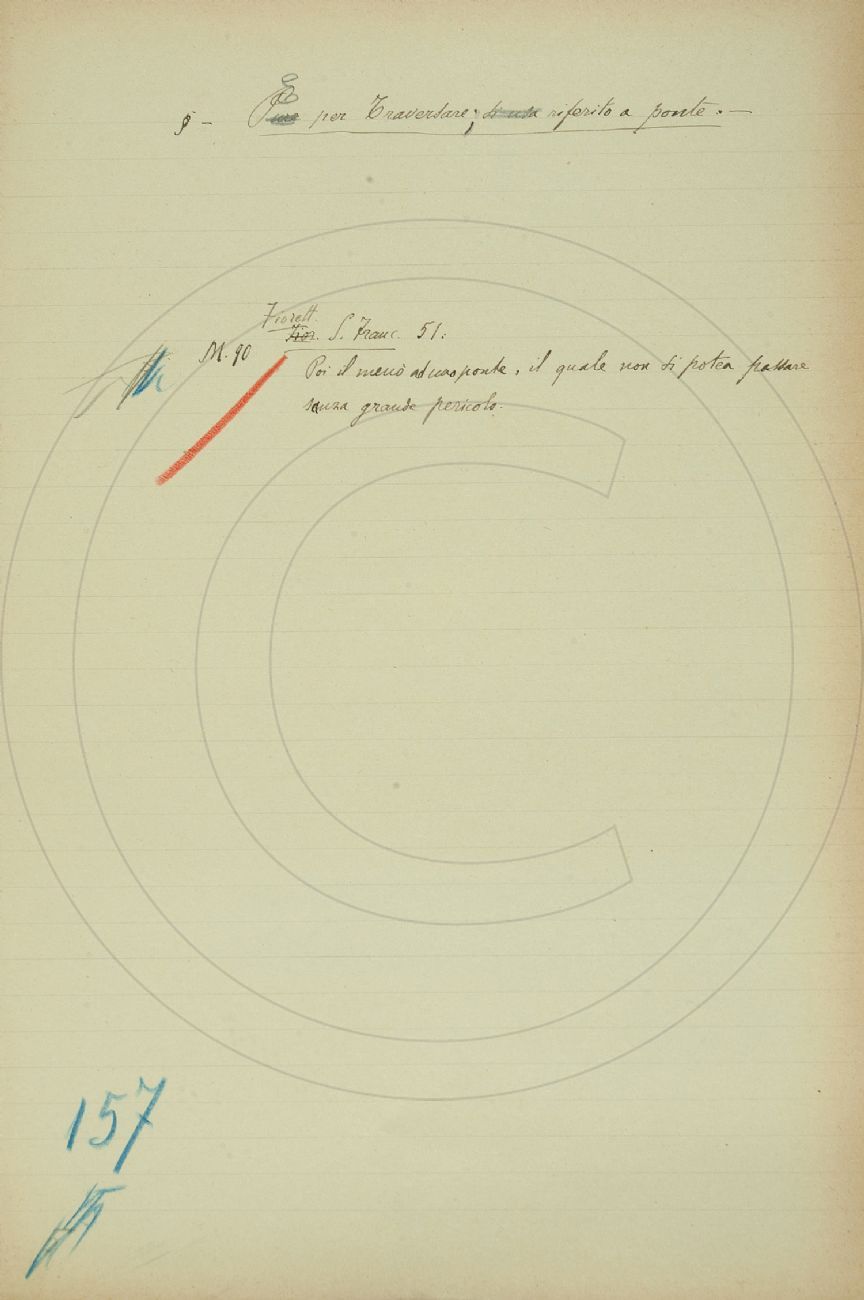 § - E per Traversare; riferito a ponte. -
Fiorett.
Fior. S. Franc. 51:
M. 90
Poi il menò ad uno ponte, il quale non si potea passare
sanza grande pericolo.
157